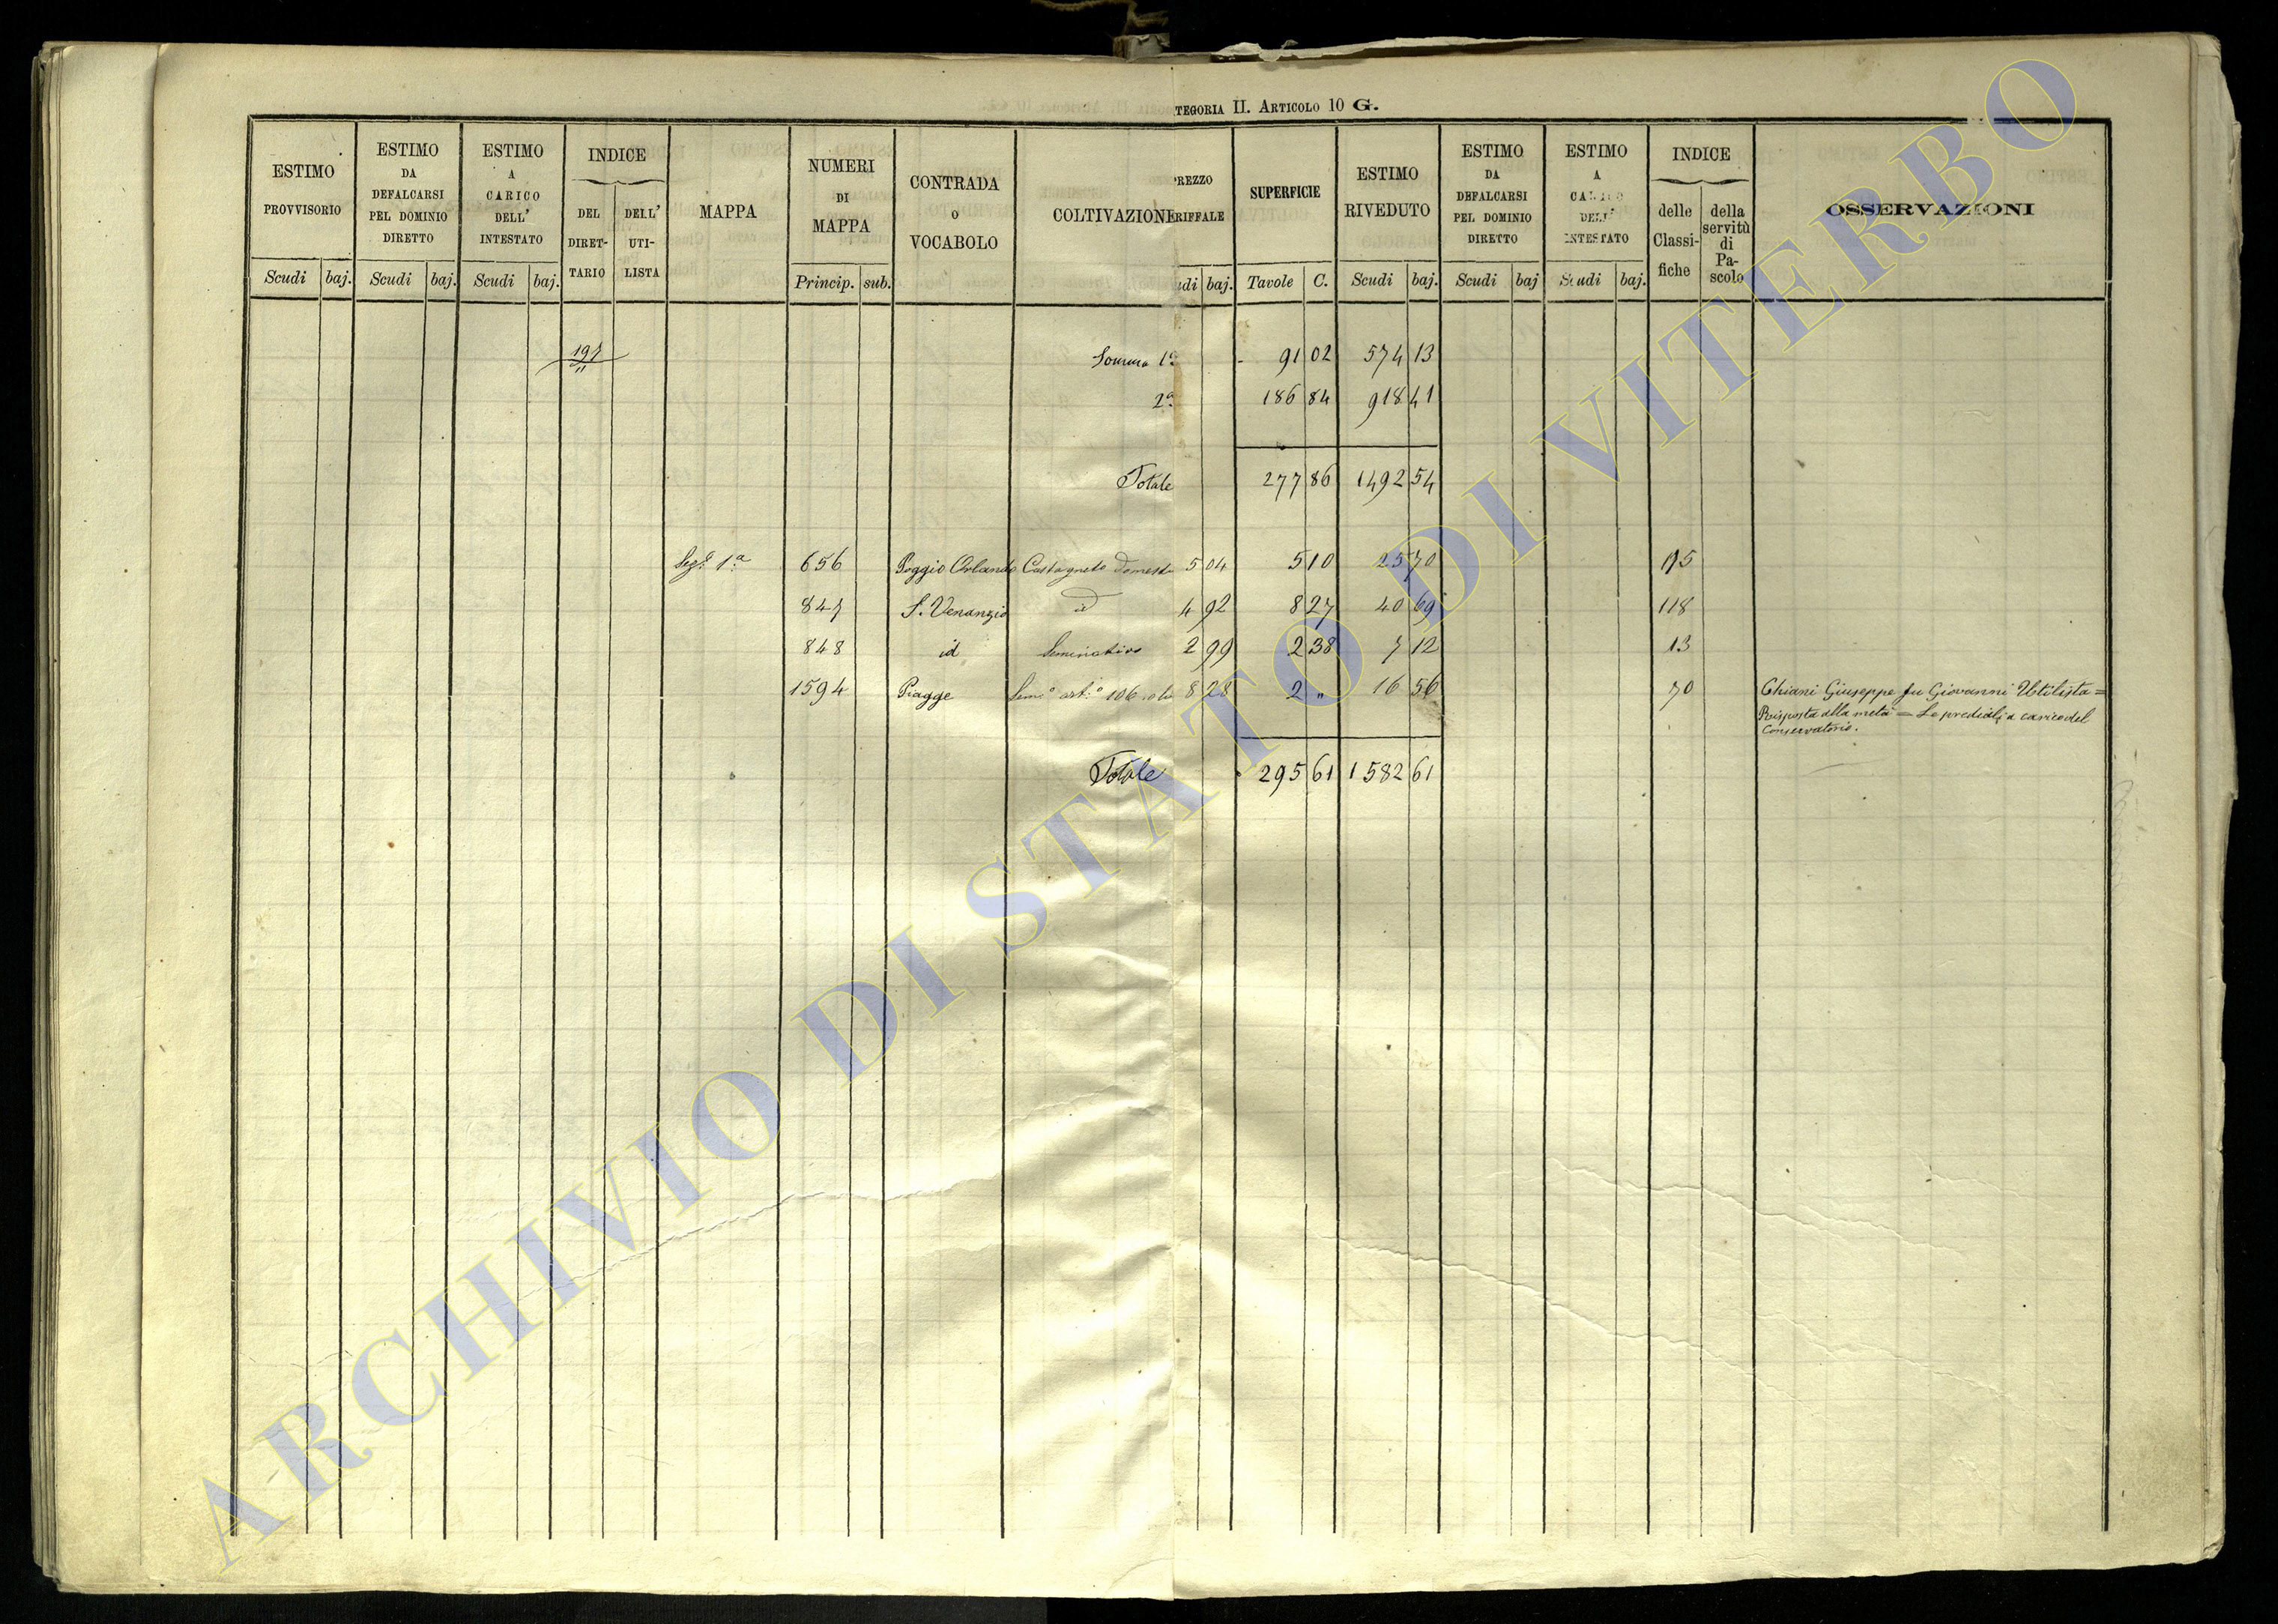 TEGORIA II. ARTICOLO 10 G.
ESTIMO PROVVISORIO
ESTIMO DA DEFALCARSI PEL DOMINIO DIRETTO
ESTIMO A CARICO DELL' INTESTATO
INDICE
DEL DIRET-TARIO
DELL' UTI-LISTA
MAPPA
NUMERI DI MAPPA
CONTRADA O VOCABOLO
COLTIVAZIONE
REZZO RIFFALE
SUPERFICIE
ESTIMO RIVEDUTO
ESTIMO DA DEFALCARSI PEL DOMINIO DIRETTO
ESTIMO A CARICO DELL' INTESTATO
INDICE
delle Classi-fiche
della servitù di Pa-scolo
OSSERVAZIONI
Scudi baj. Scudi baj. Scudi baj. Princip. sub. udi baj. Tavole C. Scudi baj. Scudi baj Scudi baj.
197 Somma 1a 91 02 574 13
2a 186 84 918 41
Totale 277 86 1492 54
Sez.e 1a 656 Poggio Orlando Castagneto domest 5 04 5 10 25 70 195
847 S. Venanzio id 4 92 8 27 40 69 118
848 id Seminativo 2 99 2 38 7 12 13
1594 Piagge 8 28 2 " 16 56 70 Ghiani Giuseppe fu Giovanni Utilista =
Risposta alla metà = Le prediali a carico del
Conservatorio.
Totale 295 61 1582 61
ARCHIVIO DI STATO DI VITERBO